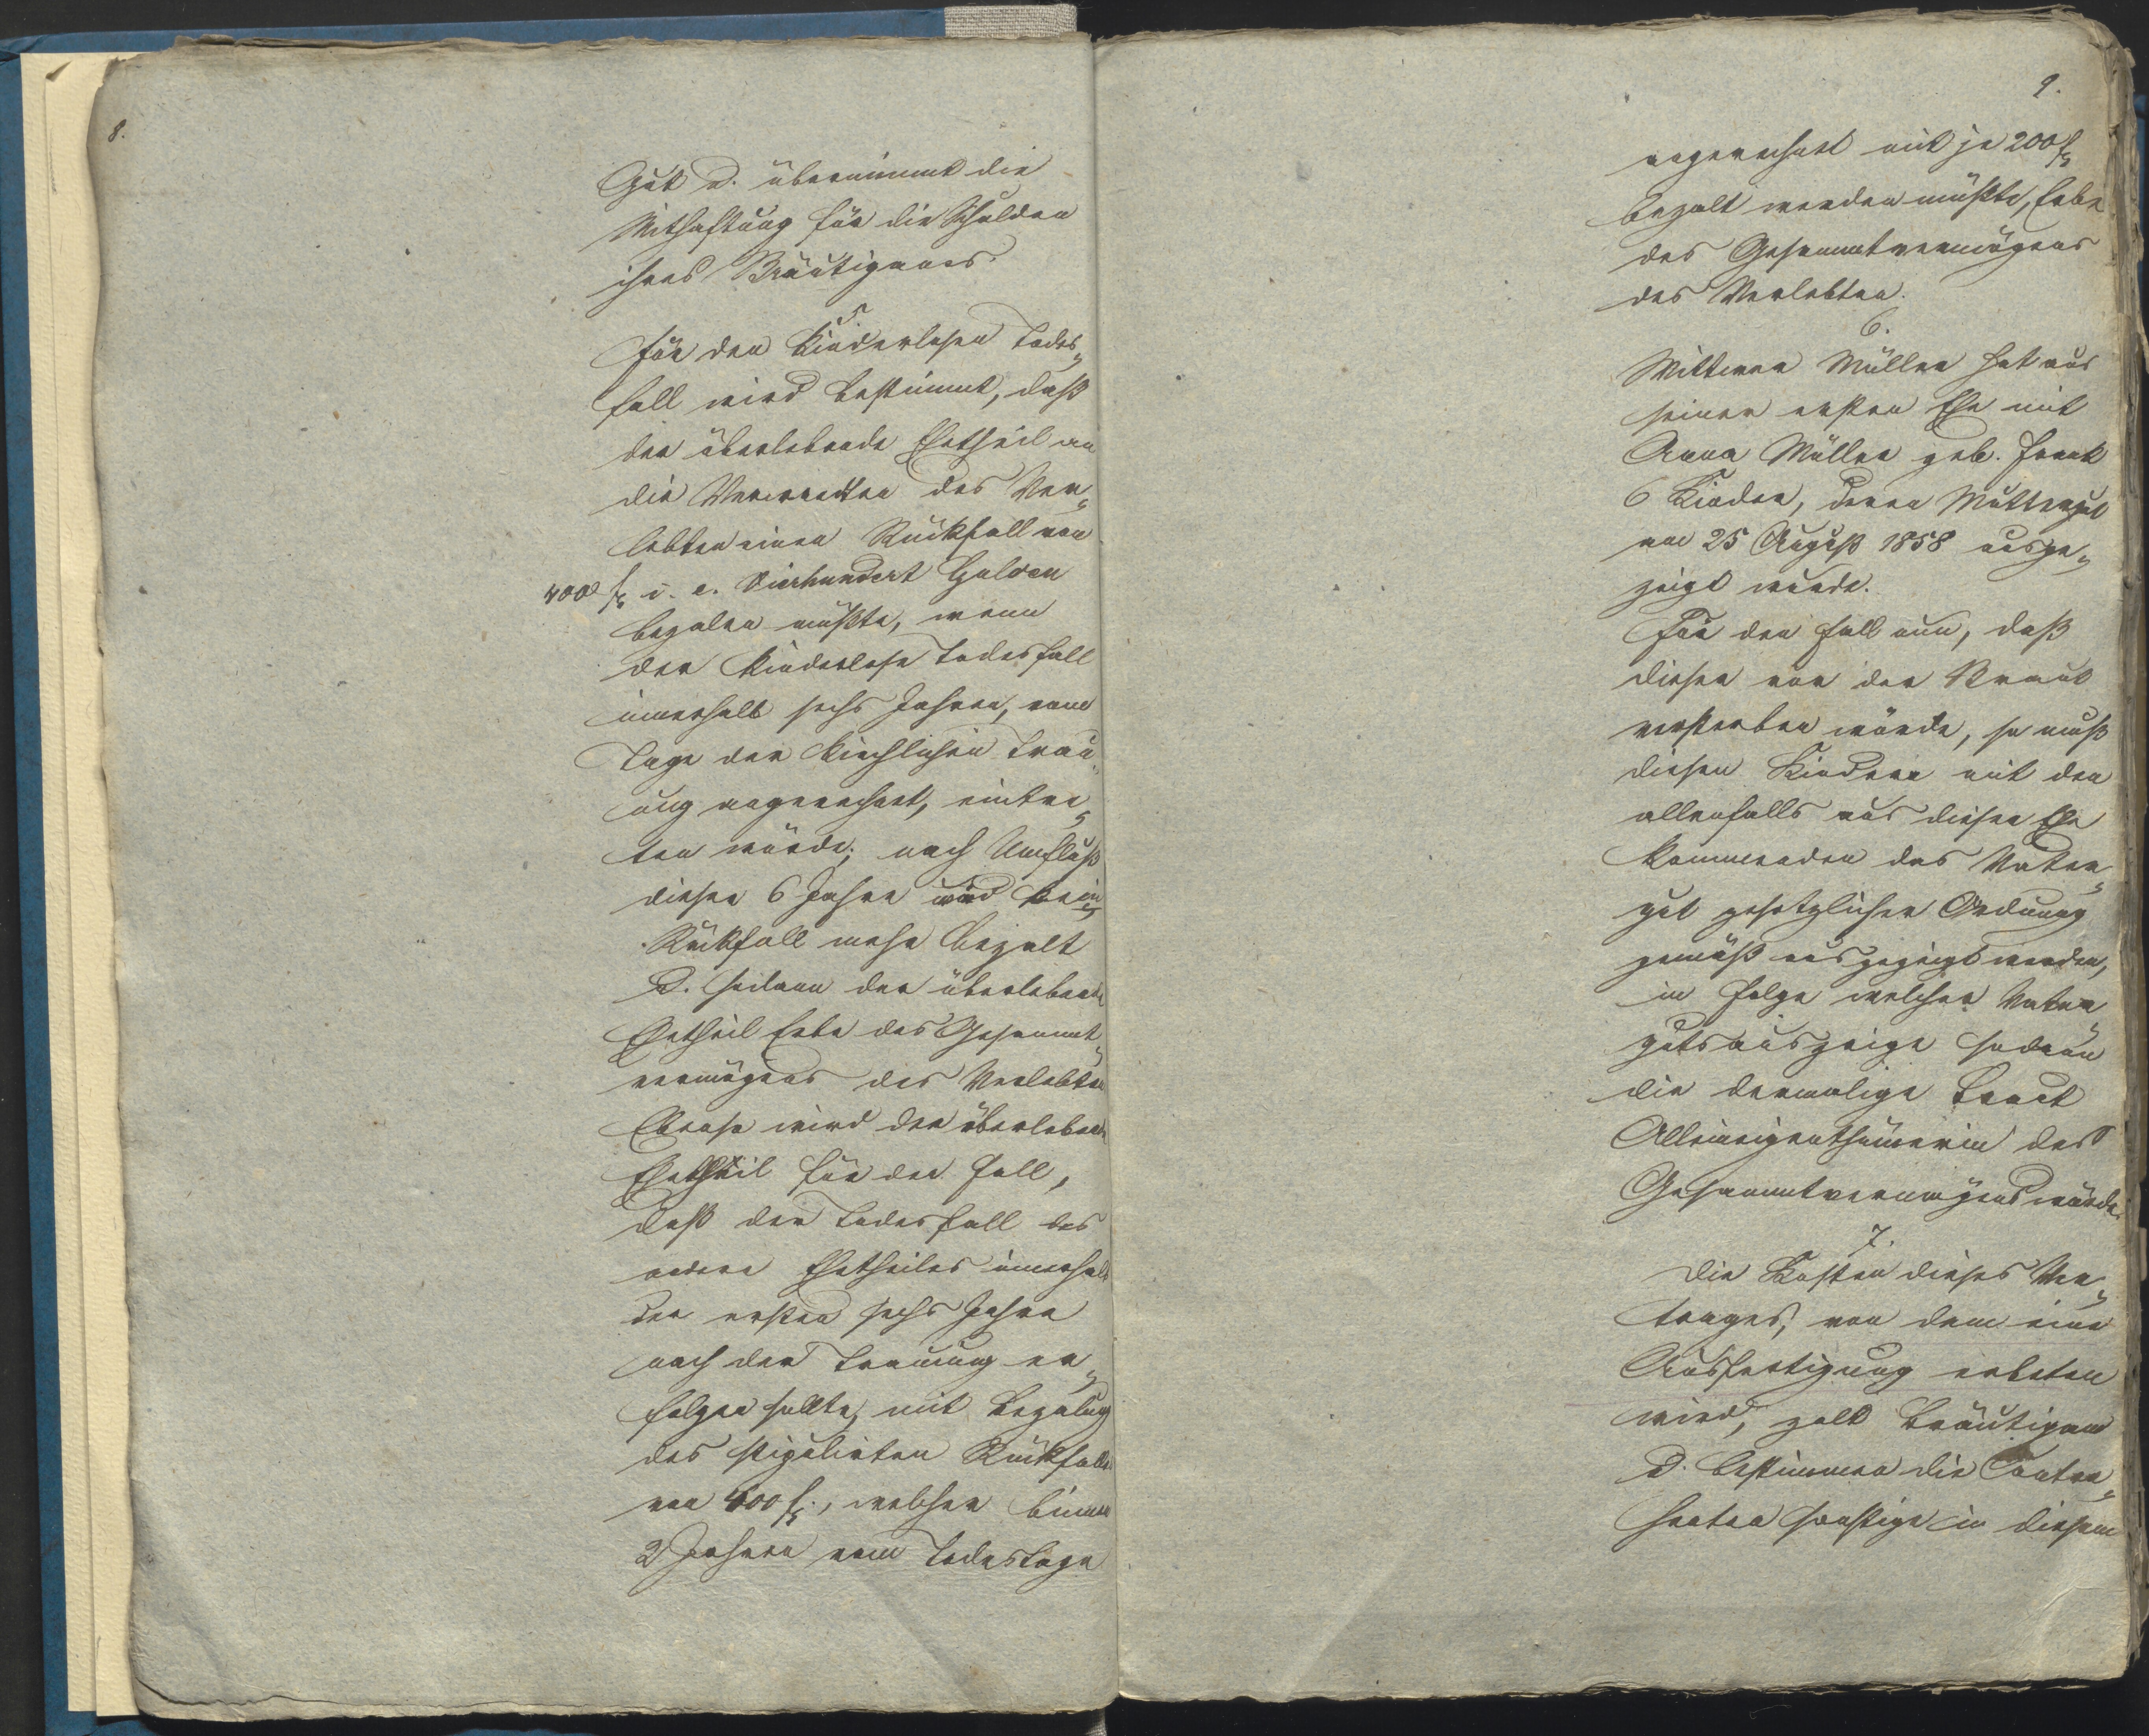 8.
Gut u. übernimmt die
Mithaftung für die Schulden
ihres Bräutigams.
5.
Für den kinderlosen Todes„
fall wird bestimmt, daß
der überlebende Ehetheil an
die Verwandten des Ver„
lebten einen Rückfall von
400 f i. e. Vierhundert Gulden
bezalen müßte, wenn
der kinderlose Todesfall
innerhalb sechs Jahren, vom
Tage der kirchlichen Trau„
ung angerechnet, eintre„
ten würde; nach Umfluß
dieser 6 Jahre wird kein
Rückfall mehr bezalt
u. sodann der überlebende
Ehetheil Erbe des Gesammt„
vermögens des Verlebten
Ebenso wird der überlebende
Ehetheil für den Fall,
daß der Todesfall des
andern Ehetheiles innerhalb
der ersten sechs Jahre
nach der Trauung er„
folgen sollte, mit Bezalung
des stipulirten Rückfalls
von 400 f., welcher binnen
2 Jahren vom Todestage
9.
angerechnet mit je 200 f
bezalt werden müßte, Erbe
des Gesammtvermögens
des Verlebten.
6.
Wittwer Müller hat aus
seiner ersten Ehe mit
Anna Müller geb. Frank
6 Kinder, deren Muttergut
am 25 August 1858 ausge„
zeigt wurde.
Für den Fall nun, daß
dieser vor der Braut
versterben würde, so muß
diesen Kindern mit den
allenfalls aus dieser Ehe
kommenden das Vater„
gut gesetzlicher Ordnung
gemäß ausgezeigt werden,
in Folge welcher Vater„
gutsauszeige sodann
die dermalige Braut
Alleineigenthümerin des
Gesammtvermögens würde.
7.
Die Kosten dieses Ver„
trages, von dem eine
Ausfertigung erbeten
wird, zalt Bräutigam
u. bestimmen die Contra„
henten sonstige in diesem